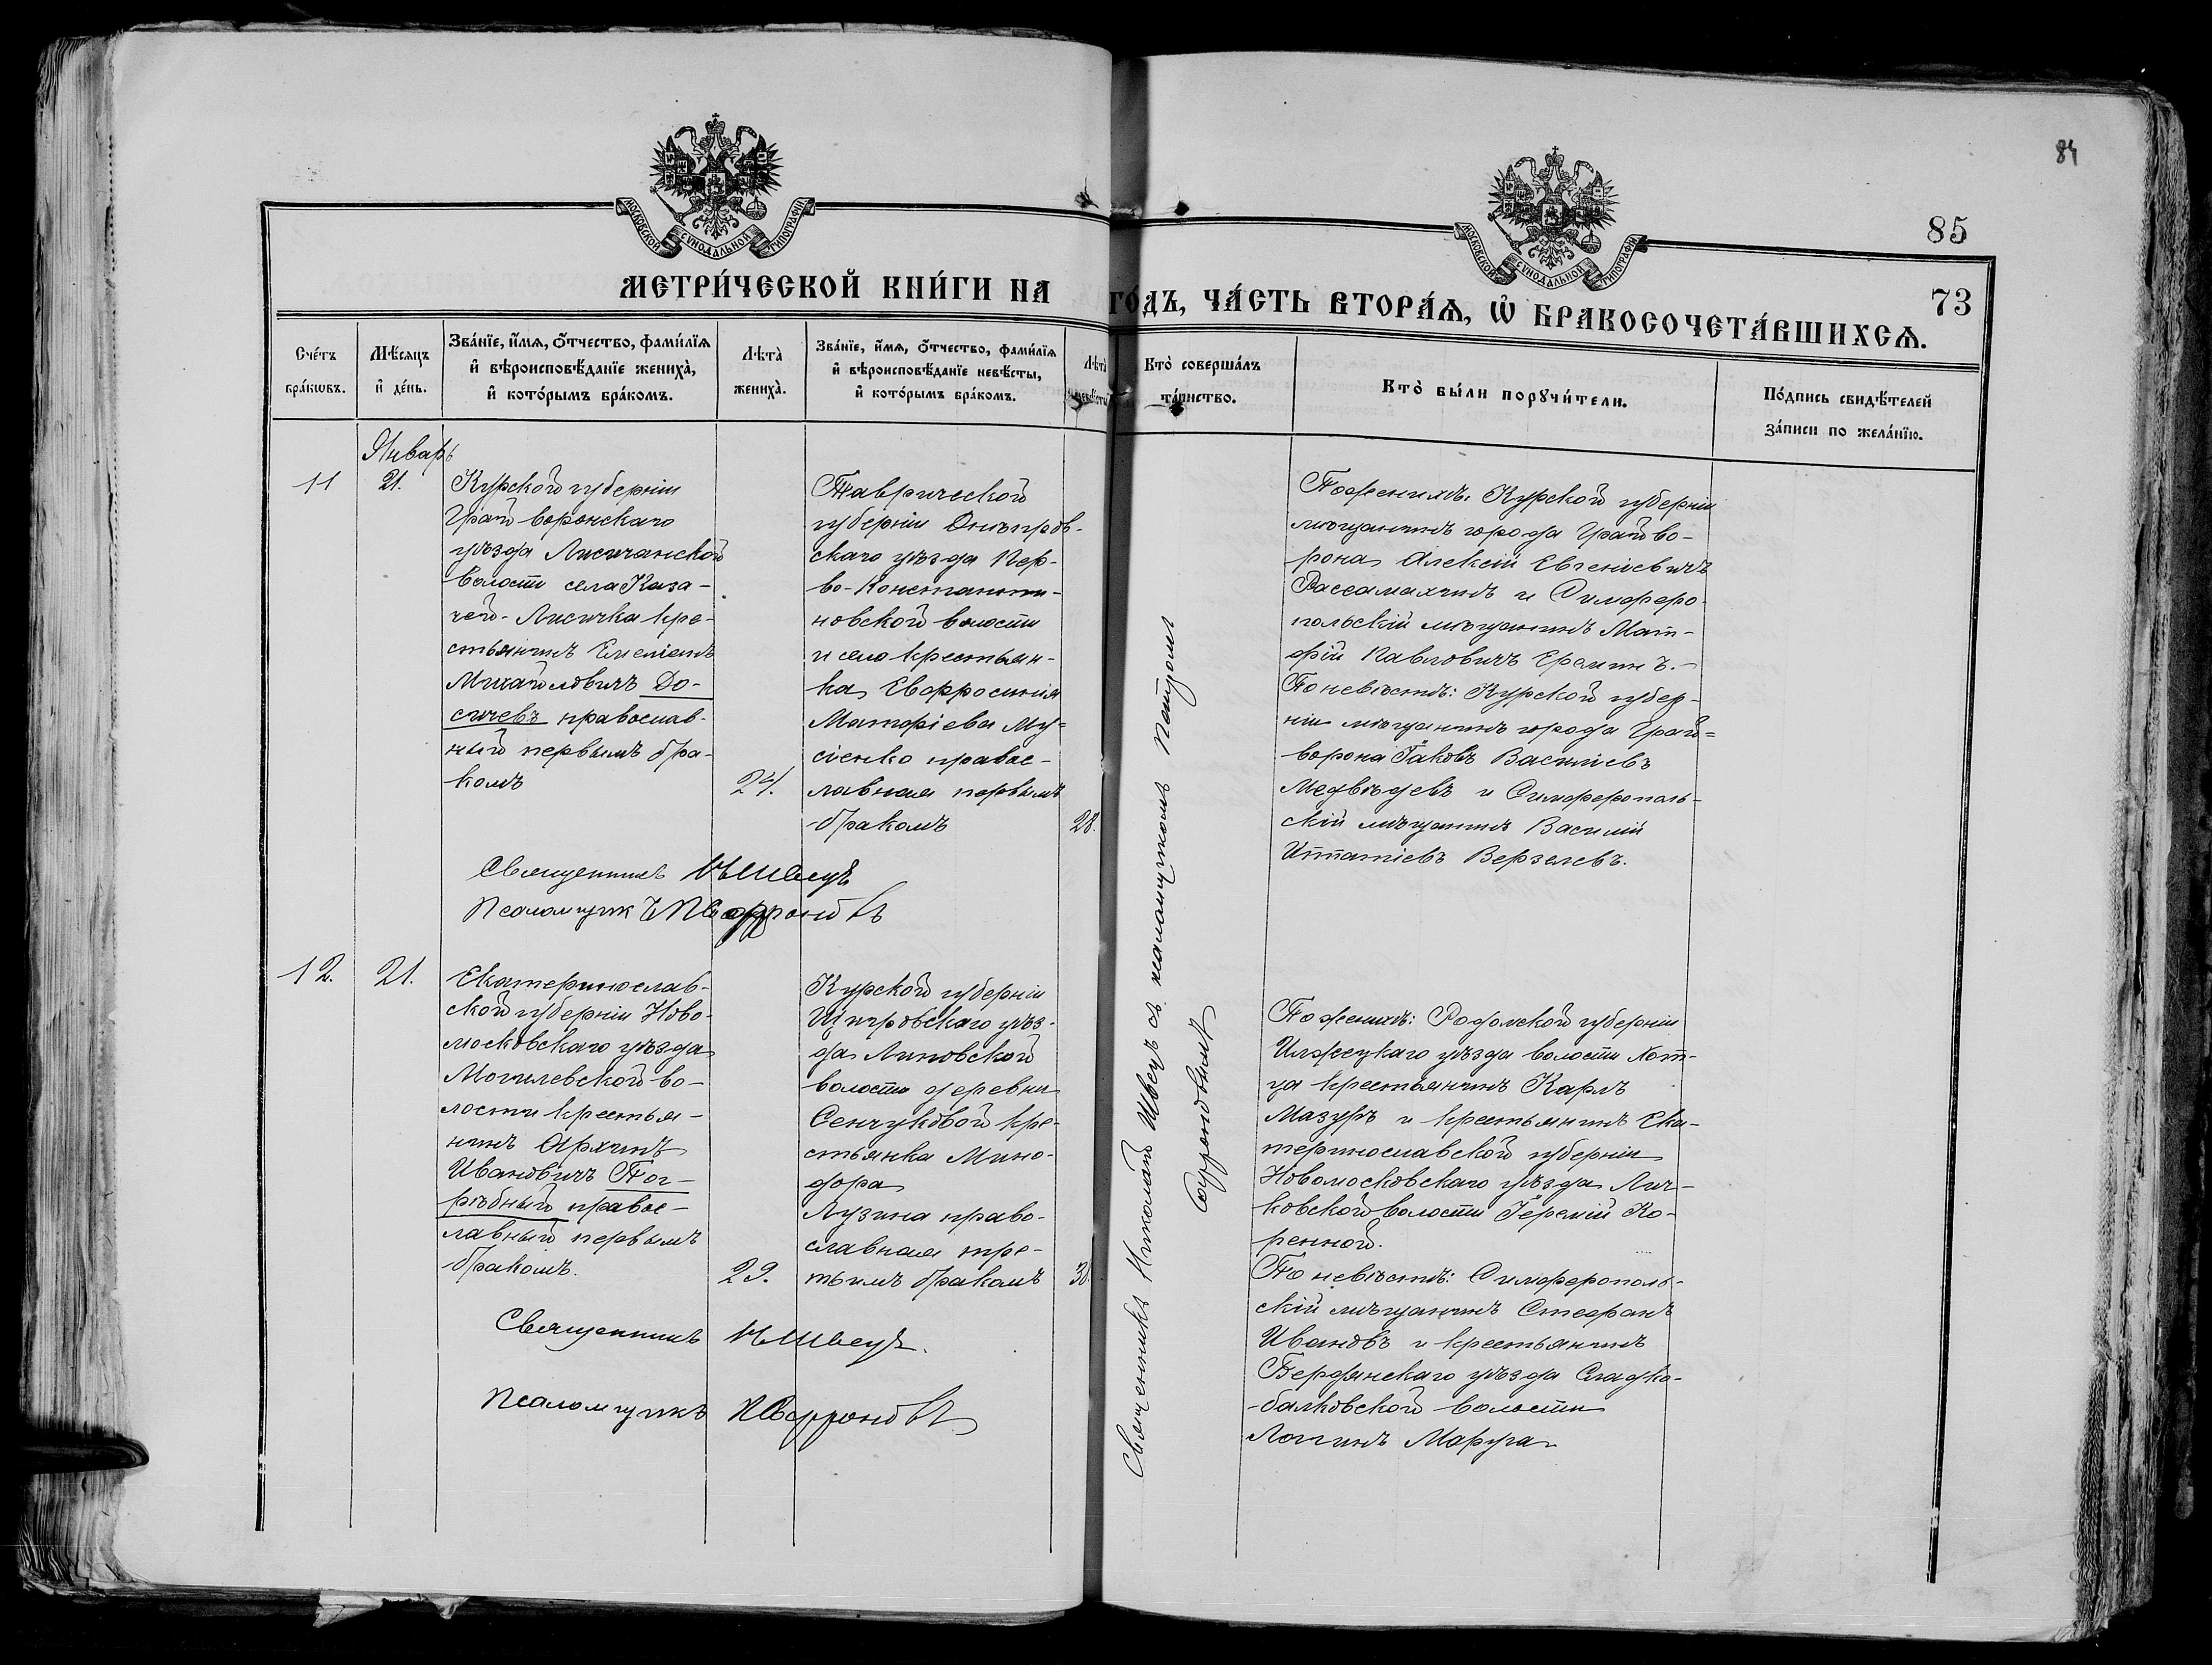 84
85
МОСКОВСКОЙ СѴНОДАЛЬНОЙ ТИПОГРАФІИ
МОСКОВСКОЙ СѴНОДАЛЬНОЙ ТИПОГРАФІИ
МЕТРИ́ЧЕСКОЙ КНИ́ГИ НА ГО́ДЪ, ЧА́СТЬ ВТОРА́Ѧ, Ѡ҆ БРАКОСОЧЕТА́ВШИХСѦ.
73
Сче́тъ
бра́кѡвъ.
Мѣ́сѧцъ
и҆ де́нь.
Зва́нїе, и҆́мѧ, ѻ҆́тчество, фами́лїѧ
и҆ вѣроисповѣ́данїе жениха̀,
и҆ кото́рымъ бра́комъ.
Лѣта̀
жениха̀.
Зва́нїе, и҆́мѧ, ѻ҆́тчество, фами́лїѧ
и҆ вѣроисповѣ́данїе невѣ́сты,
и҆ кото́рымъ бра́комъ.
Лѣта̀
невѣ́сты
Кто̀ соверша́лъ
та́инство.
Кто̀ бы́ли порꙋчи́тели.
По́дпись свидѣ́телей
за́писи по жела́нїю.
Январь
11
21.
Курской губерніи
Грайворонскаго
уѣзда Лисичанской
волости села Каза-
чей-Лисичка кре-
стьянинъ Емеліанъ
Михайловичъ До-
сычевъ православ-
ный первымъ бра-
комъ
24.
Таврической
губерніи Днѣпров-
скаго уѣзда Пер-
во-Константи-
новской волости
и села крестьян-
ка Евфросинія
Матфіева Му-
сіенко правос-
лавная первымъ
бракомъ
28.
По женихѣ: Курской губерніи
мѣщанинъ города Грайво-
рона Алексій Евгеніевичъ
Рассамахинъ и Симферо-
польскій мѣщанинъ Мат-
фій Павловичъ Ереминъ.
По невѣстѣ: Курской губер-
ніи мѣщанинъ города Грай-
ворона Іаковъ Василіевъ
Медвѣдевъ и Симферополь-
скій мѣщанинъ Василій
Игнатіевъ Верзелевъ.
Священникъ Н Швецъ
Псаломщикъ
Священникъ Николай Швецъ съ псаломщикомъ
12.
21.
Екатеринослав-
ской губерніи Ново-
московскаго уѣзда
Могилевской во-
лости крестья-
нинъ Архипъ
Ивановичъ Пог-
рѣбный правос-
лавный первымъ
бракомъ.
29.
Курской губерніи
Щигровскаго уѣз-
да Липовской
волости деревни
Сенчуковой кре-
стьянка Мино-
дора
Лузина право-
славная тре-
тьимъ бракомъ
По женихѣ: Радомской губерніи
Илжецкаго уѣзда волости Хот-
ца крестьянинъ Карлъ
Мазуръ и крестьянинъ Ека-
теринославской губерніи
Новомосковскаго уѣзда Лич-
ковской волости Іеремій Ко-
ренной.
По невѣстѣ: Симферополь-
скій мѣщанинъ Стефанъ
Ивановъ и крестьянинъ
Бердянскаго уѣзда Сладко-
балковской волости
Логгинъ
Священникъ Н Швецъ.
Псаломщикъ